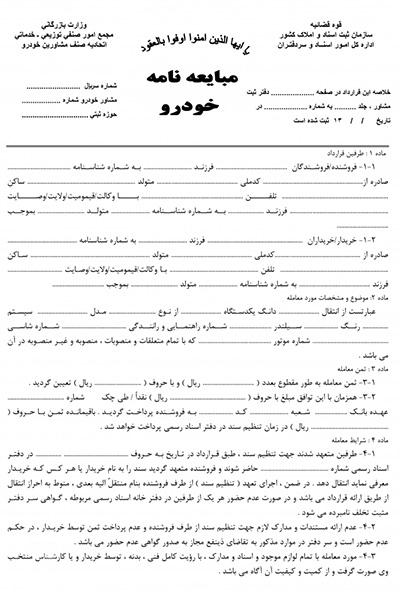 قوه قضائیه
سازمان ثبت اسناد و املاک کشور
اداره کل امور اسناد و سردفتران
یا ایها الذین امنوا اوفوا بالعقود
وزارت بازرگانی
مجمع امور صنفی توزیعی ـ خدماتی
اتحادیه صنف مشاورین خودرو
مبایعه نامه
خودرو
خلاصه این قرارداد در صفحه .................... دفتر ثبت
مشاور ، جلد ......... به شماره .................... در
تاریخ    /    /    ۱۳ ثبت شده است
شماره سریال ........................
مشاور خودرو شماره ....................
حوزه ثبتی ........................
ماده ۱ : طرفین قرارداد
۱-۱- فروشنده/فروشندگان .................... فرزند .................... به شماره شناسنامه ....................
صادره از .................... کدملی .................... متولد .................... ساکن
.................... تلفن .................... با وکالت/قیمومیت/ولایت/وصایت
.................... فرزند .................... به شماره شناسنامه .................... متولد .................... بموجب
....................
۱-۲- خریدار/خریداران .................... فرزند .................... به شماره شناسنامه ....................
صادره از .................... کدملی .................... متولد .................... ساکن
.................... تلفن .................... با وکالت/قیمومیت/ولایت/وصایت ....................
فرزند .................... به شماره شناسنامه .................... متولد .................... بموجب ....................
ماده ۲: موضوع و مشخصات مورد معامله
عبارتست از انتقال .................... دانگ یکدستگاه .................... از نوع .................... مدل .................... سیستم
.................... رنگ .................... سیلندر .................... شماره راهنمایی و رانندگی .................... شماره شاسی
.................... شماره موتور .................... که با تمام متعلقات و منصوبات ، منصوبه و غیر منصوبه در آن
می باشد .
ماده ۳ : ثمن معامله
۳-۱- ثمن معامله به طور مقطوع بعدد ( .................... ریال ) و با حروف ( .................... ریال ) تعیین گردید .
۳-۲- همزمان با این توافق مبلغ با حروف ( .................... ریال ) نقداً / طی چک .................... شماره ....................
عهده بانک .................... شعبه .................... کد .................... به فروشنده پرداخت گردید . باقیمانده ثمن با حروف (
.................... ریال ) در زمان تنظیم سند در دفتر اسناد رسمی پرداخت خواهد شد .
ماده ۴ : شرایط معامله
۴-۱- طرفین متعهد شدند جهت تنظیم سند ، طبق قرارداد در تاریخ به حروف .................... در دفتر
اسناد رسمی شماره .................... حاضر شوند و فروشنده متعهد گردید سند را به نام خریدار یا هر کس که خریدار
معرفی نماید انتقال دهد . در ضمن ، اجرای تعهد ( تنظیم سند ) از طرف فروشنده بنام منتقل الیه بعدی ، منوط به احراز انتقال
از طریق ارائه قرارداد می باشد و در صورت عدم حضور هر یک از طرفین در دفتر خانه اسناد رسمی مربوطه ، گواهی سر دفتر
مثبت تخلف نامبرده می شود .
۴-۲- عدم ارائه مستندات و مدارک لازم جهت تنظیم سند از طرف فروشنده و عدم پرداخت ثمن توسط خریدار ، در حکم
عدم حضور است و سر دفتر در موارد مذکور به تقاضای ذینفع مجاز به صدور گواهی عدم حضور می باشد .
۴-۳- مورد معامله با تمام لوازم موجود و اسناد و مدارک ، با رؤیت کامل فنی ، بدنه ، توسط خریدار و یا کارشناس منتخب
وی صورت گرفت و از کمیت و کیفیت آن آگاه می باشد .